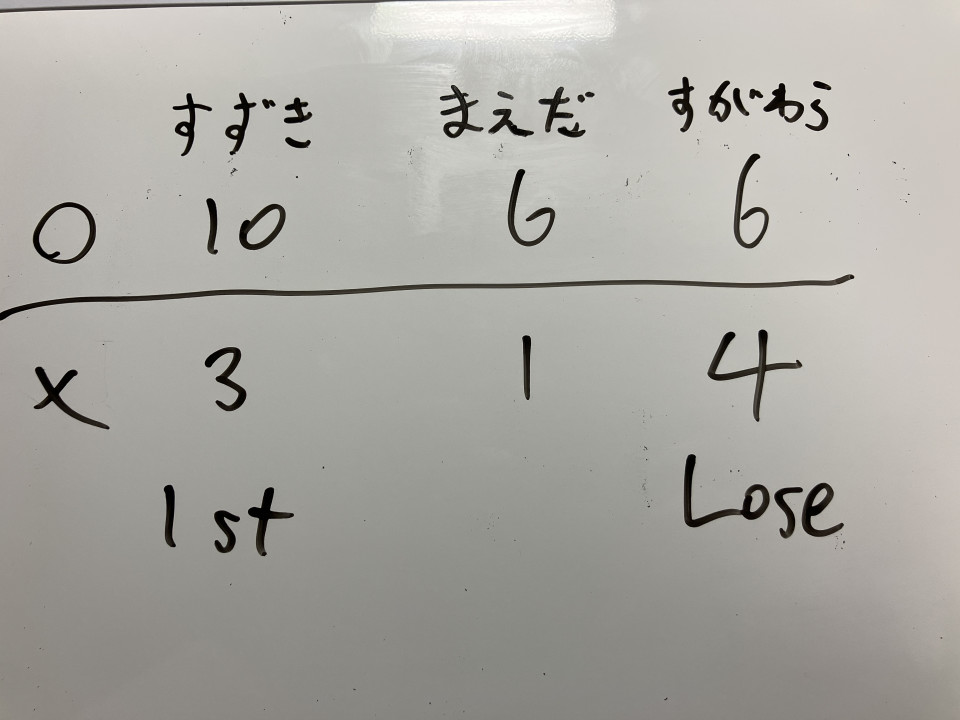 すずき まえだ すがわら
○ 10 6 6
× 3 1 4
1st Lose